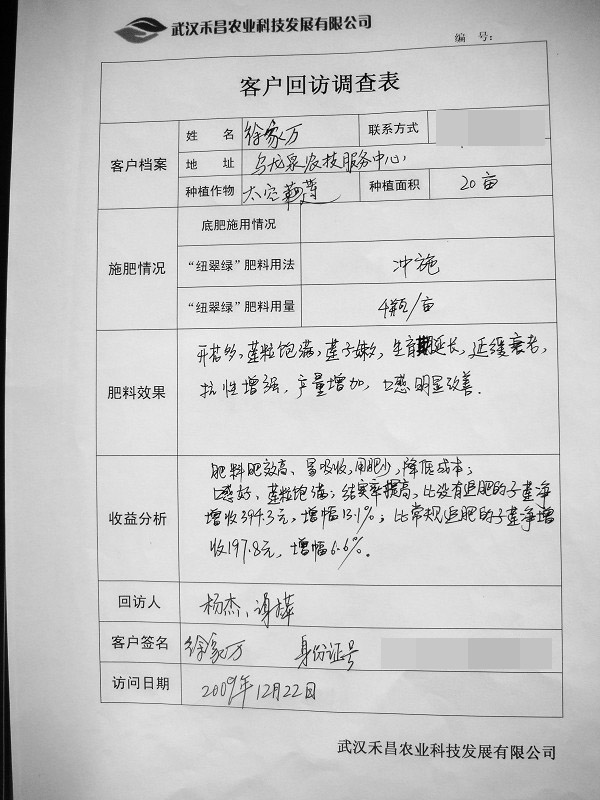 武汉禾昌农业科技发展有限公司
编 号:
客户回访调查表
客户档案
姓 名 徐家万 联系方式
地 址 乌龙泉农技服务中心
种植作物 太空莲 种植面积 20亩
施肥情况
底肥施用情况
“纽翠绿”肥料用法 冲施
“纽翠绿”肥料用量 4瓶/亩
肥料效果
开花多,莲粒饱满,莲子嫩,生育期延长,延缓衰老,
抗性增强,产量增加,口感明显改善.
收益分析
肥料肥效高、易吸收,用肥少,降低成本;
口感好、莲粒饱满;结实率提高,比没有追肥的子莲净
增收394.3元,增幅13.1%;比常规追肥的子莲净增
收197.8元,增幅6.6%。
回访人 杨杰、谢
客户签名 徐家万 身份证号
访问日期 2009年12月22日
武汉禾昌农业科技发展有限公司